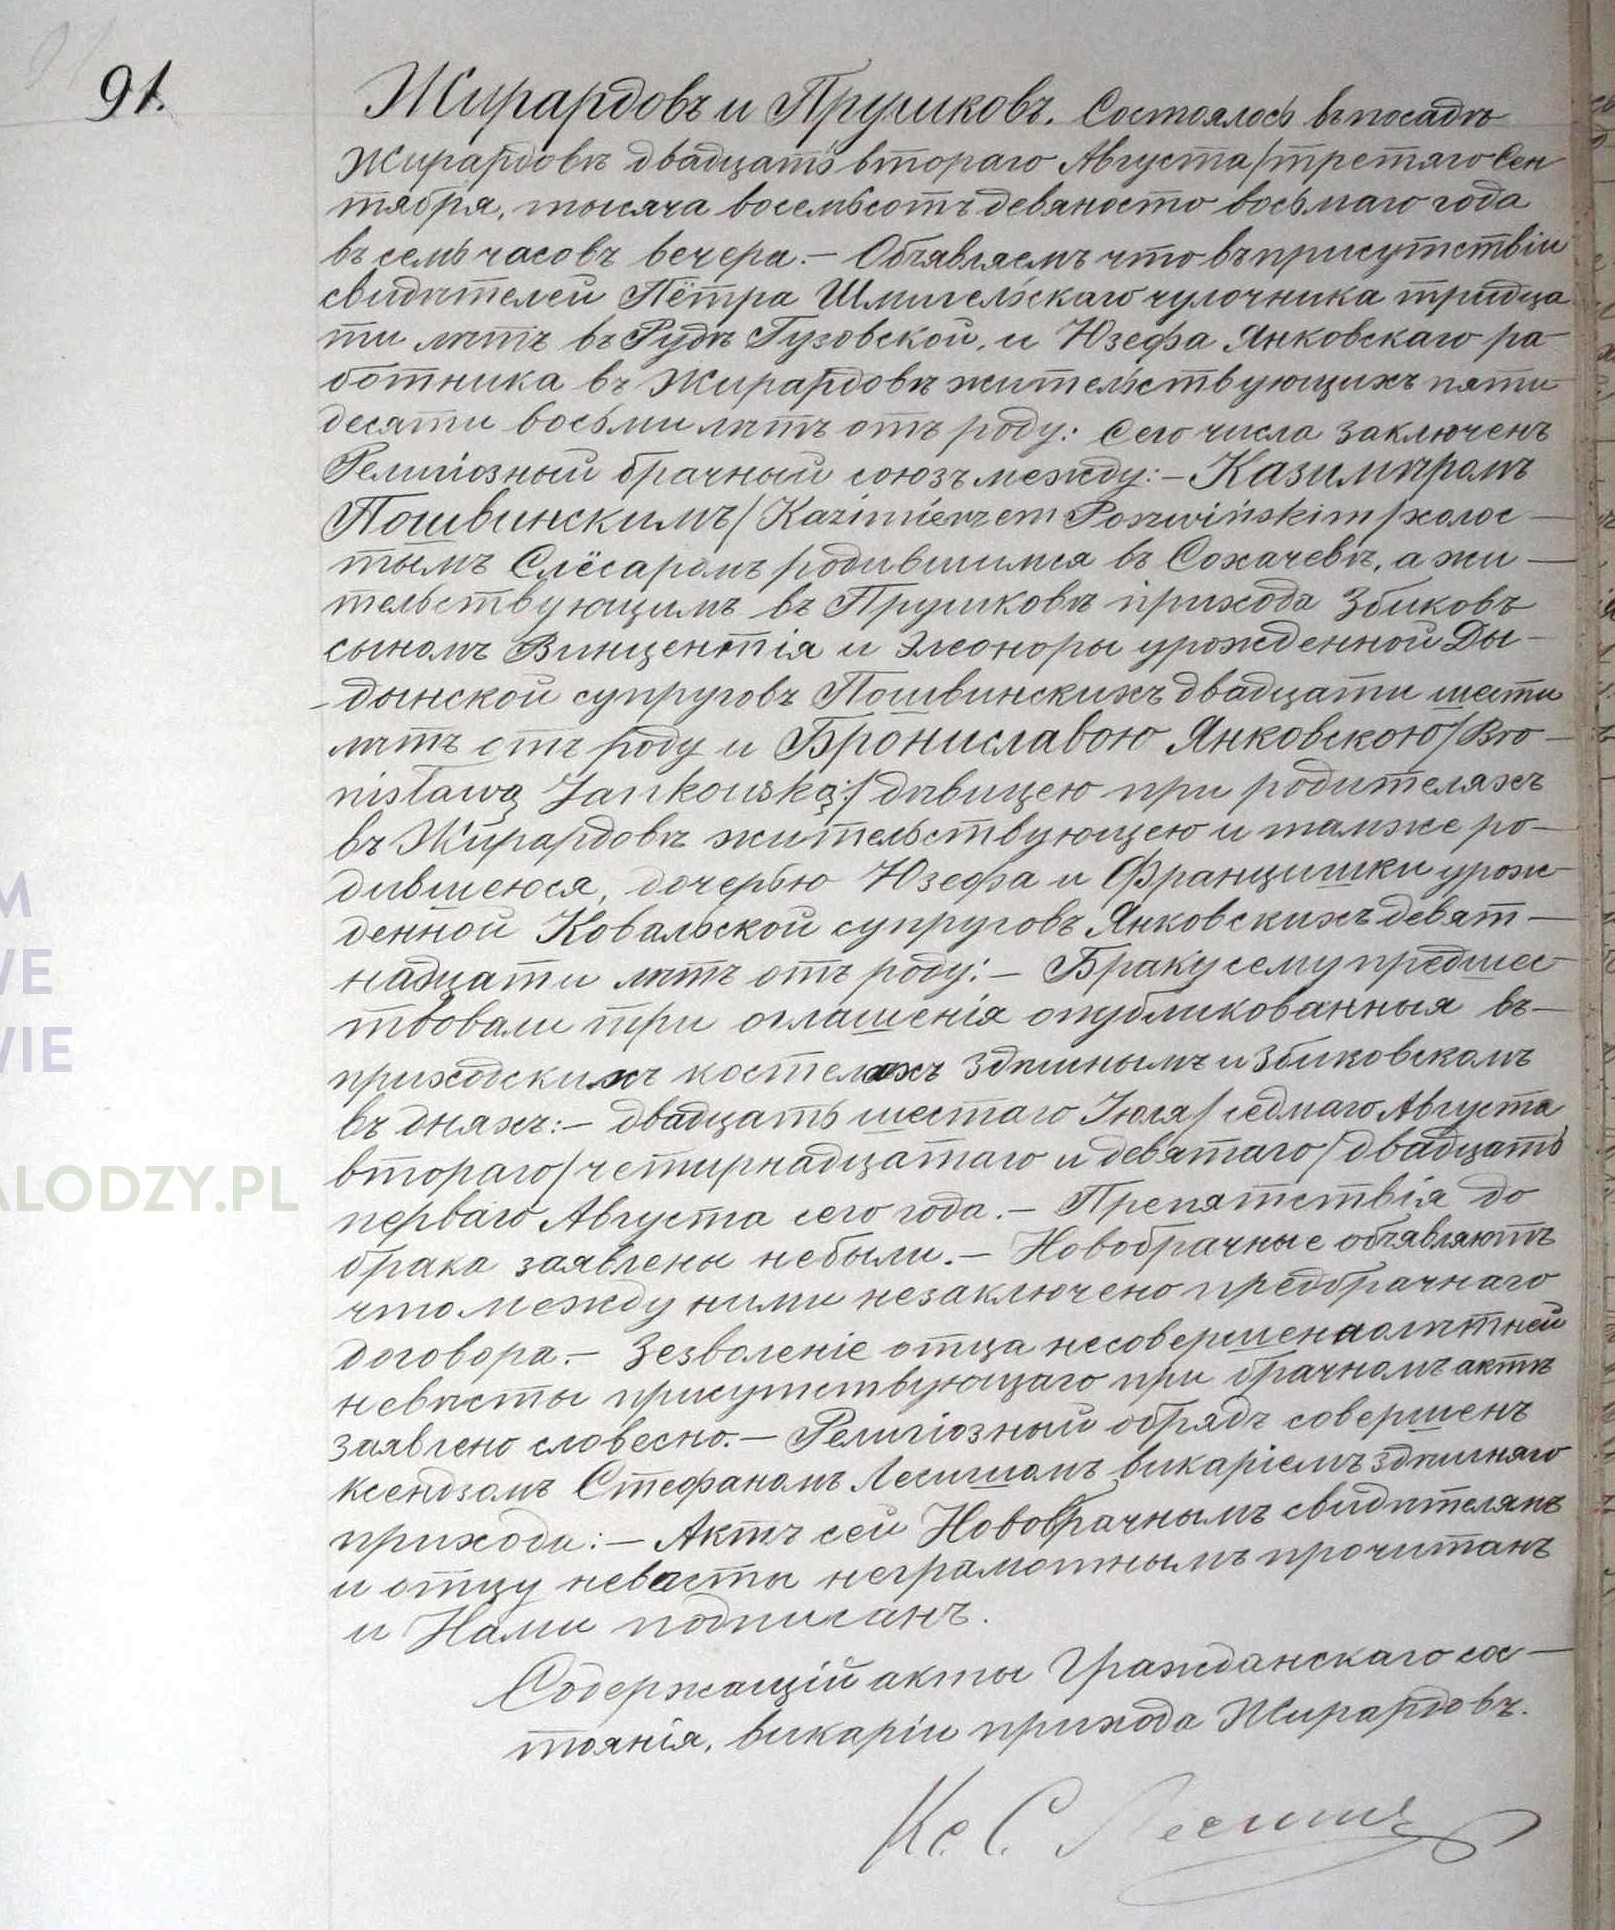 91.
Жирардовъ и Прушковъ. Состоялось въ посадѣ
Жирардовѣ двадцать втораго Августа/третяго Сен
тября, тысяча восемьсотъ девяносто восьмаго года
въ семь часовъ вечера.– Объявляемъ что въ присутствіи
свидѣтелей Пётра Шмигельскаго чулочника тридца
ти лѣтъ въ Рудѣ Гузовской, и Юзефа Янковскаго ра
ботника въ Жирардовѣ жительствующихъ пяти
десяти восьми лѣтъ отъ роду: сего числа заключенъ
Религіозный брачный союзъ между:– Казимѣромъ
Пошвинскимъ/Kazimierzem Poszwińskim/холос–
тымъ Слёсаромъ родившимся въ Сохачевѣ, а жи–
тельствующимъ въ Прушковѣ прихода Збиковъ
сыномъ Винцентія и Элеоноры урожденной Ды–
–дынской супруговъ Пошвинскихъ двадцати шести
лѣтъ отъ роду и Брониславою Янковскою/Bro–
nisławą Jankowską:/дѣвицею при родителяхъ
въ Жирардовѣ жительствующею и тамже ро–
дившеюся, дочерью Юзефа и Францишки урож
денной Ковальской супруговъ Янковскихъ девят–
надцати лѣтъ отъ роду:– Браку сему предшес
твовали три оглашенія опубликованныя въ–
приходскихъ костелахъ Здѣшнымъ и Збиковскомъ
въ дняхъ:– двадцать шестаго Іюля/седмаго Августа
втораго/четирнадцатаго и девятаго/двадцать
перваго Августа сего года.– Препятствія до
брака заявлены небыли.– Новобрачные объявляютъ
что между ними незаключено предбрачнаго
договора.– Зезволеніе отца несовершеннолѣтней
невѣсты присутствующаго при брачномъ актѣ
заявлено словесно.– Религіозный обрядъ совершенъ
ксендзомъ Стефаномъ Лесишомъ викаріемъ здѣшняго
прихода:– Актъ сей Новобрачнымъ свидѣтелямъ
и отцу невѣсты неграмотнымъ прочитанъ
и Нами подписанъ.
Содержащій акты Гражданскаго сос–
тоянія, викарій прихода Жирардовъ.
Кс. С. Лесишъ
M
WE
WIE
ALODZY.PL